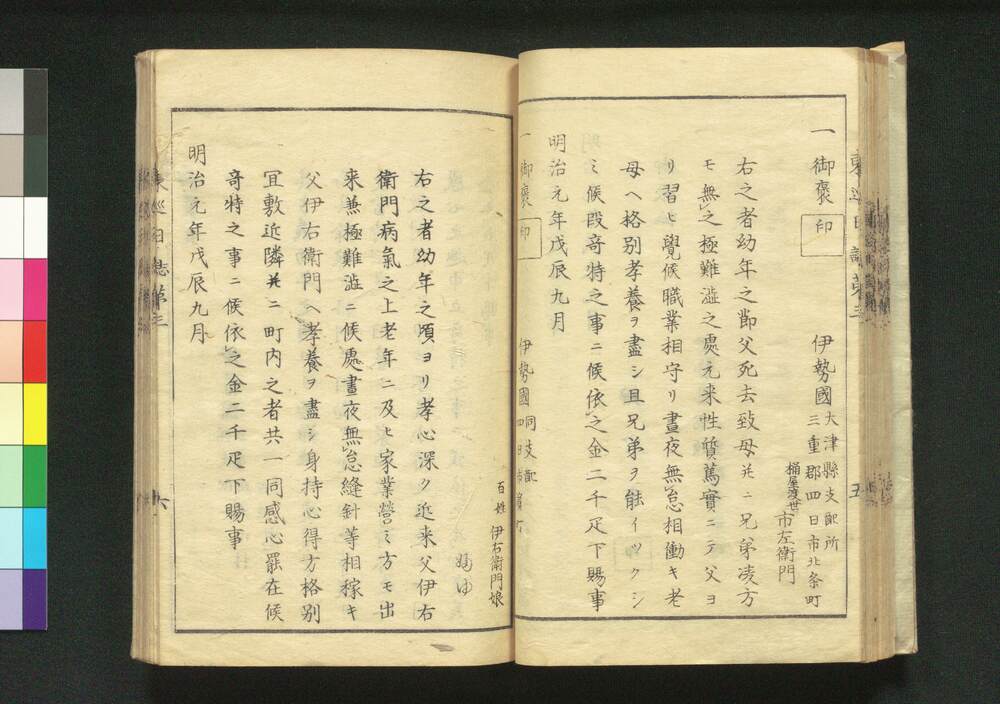 一 御褒 印 伊勢國 大津縣支配所
三重郡四日市北条町
桶屋渡世
市左衛門
右之者幼年之節父死去致母并ニ兄弟凌方
モ無之極難澁之處元来性質篤實ニテ父ヨ
リ習ヒ覺候職業相守リ晝夜無怠相働キ老
母ヘ格別孝養ヲ盡シ且兄弟ヲ能イツクシ
ミ候段竒特之事ニ候依之金二千疋下賜事
明治元年戊辰九月
一 御褒 印 伊勢國 同支配
四日市濱町
百姓 伊右衛門娘
右之者幼年之頃ヨリ孝心深ク近来父伊右
衛門病氣之上老年ニ及ヒ家業營ミ方モ出
来兼極難澁ニ候處晝夜無怠縫針等相稼キ
父伊右衛門ヘ孝養ヲ盡シ身持心得方格別
冝敷近隣并ニ町内之者共一同感心罷在候
竒特之事ニ候依之金二千疋下賜事
明治元年戊辰九月
東巡日誌第三
六